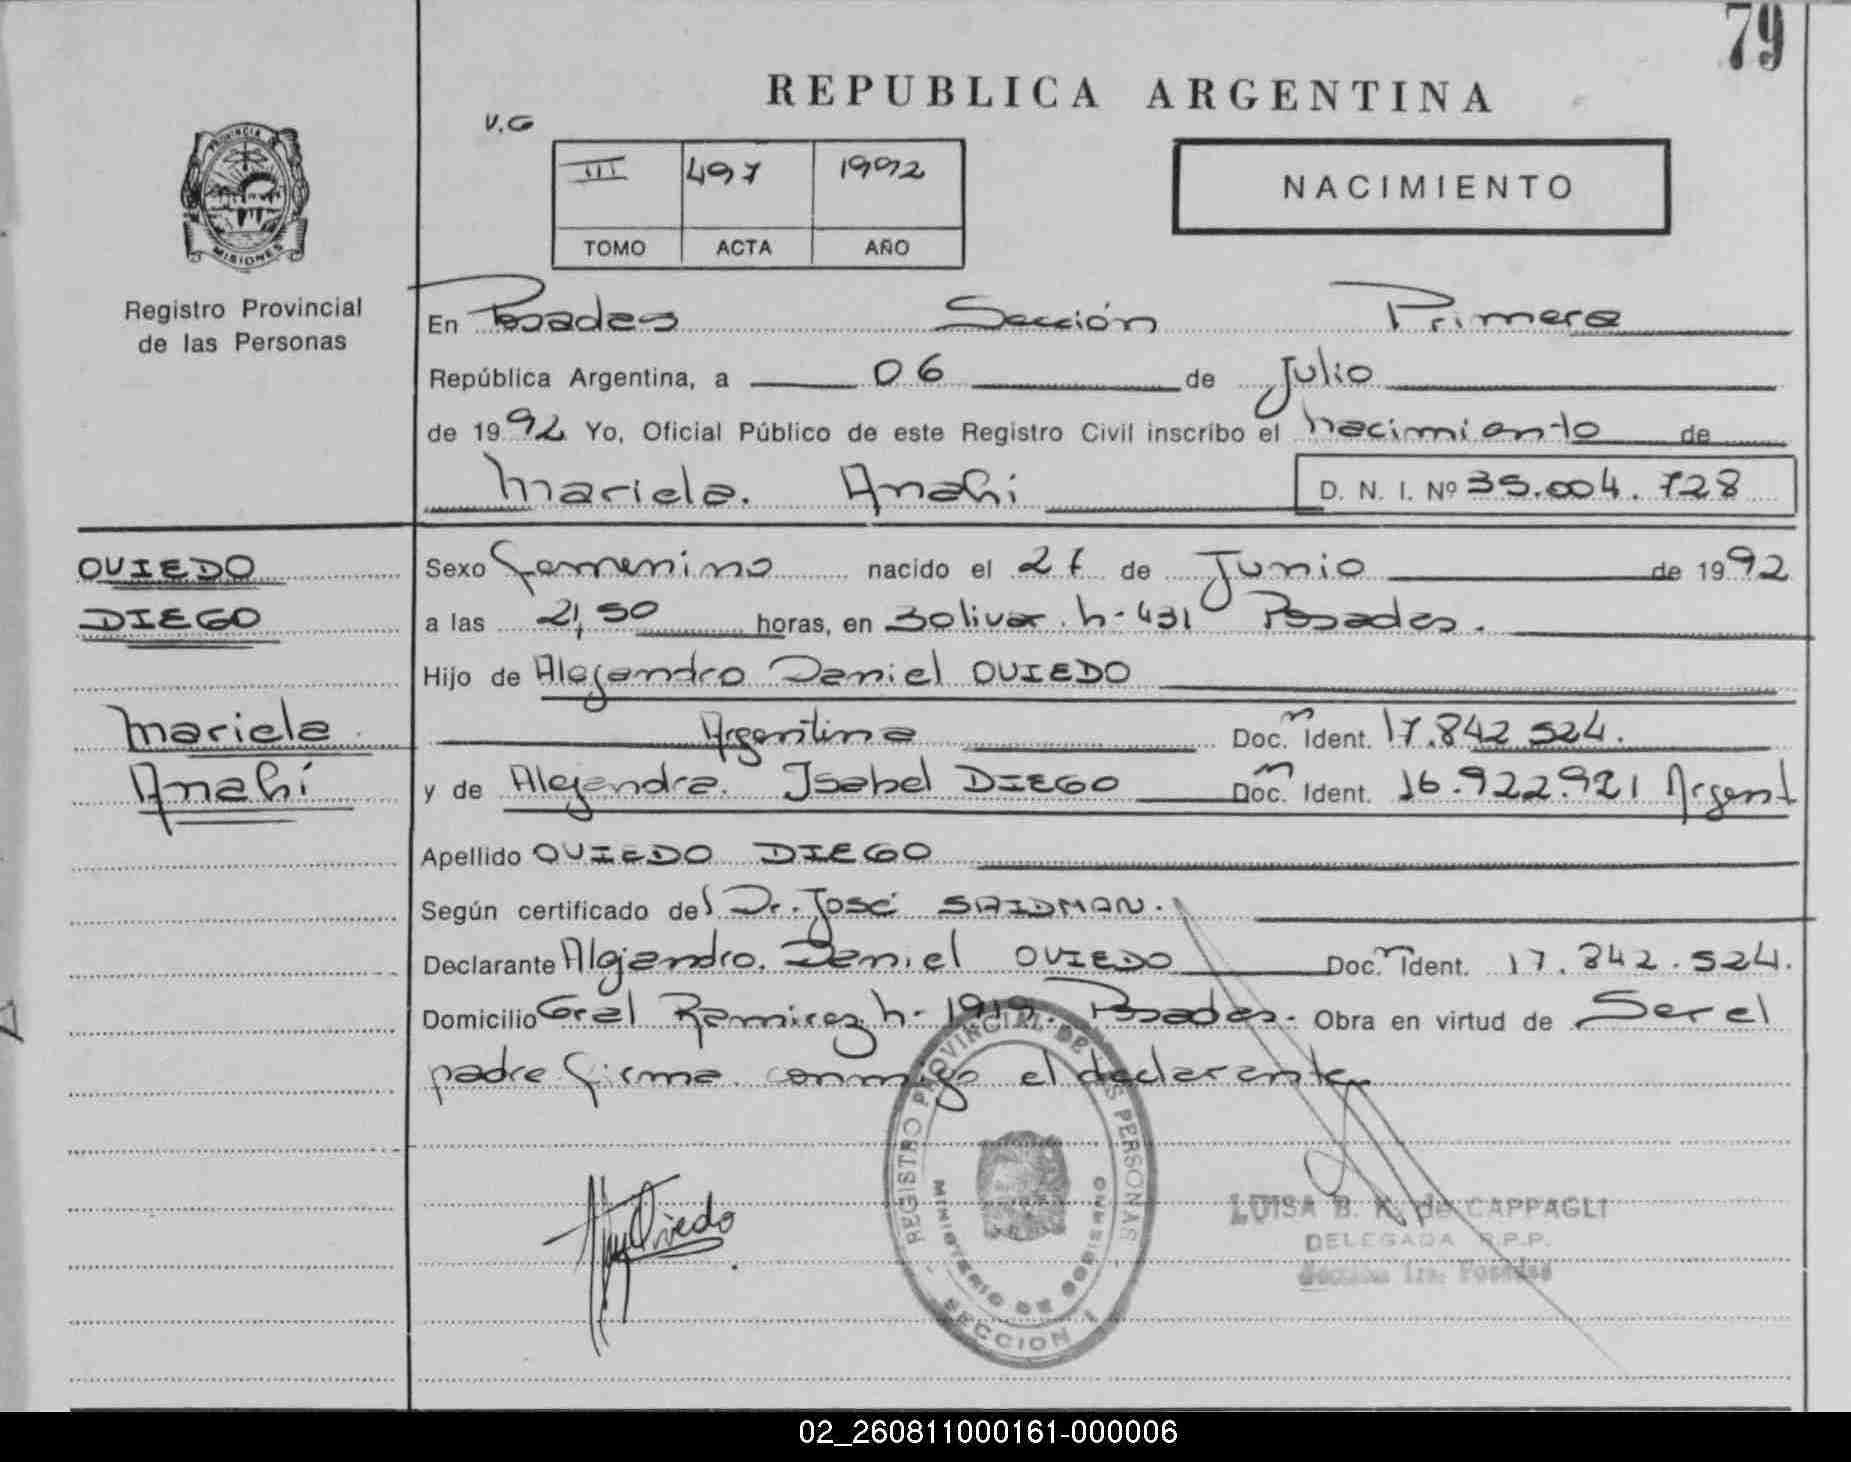 79
REPUBLICA ARGENTINA
V.G
III 497 1992
TOMO ACTA AÑO
NACIMIENTO
PROVINCIA DE
MISIONES
Registro Provincial
de las Personas
En Posadas Sección Primera
República Argentina, a 06 de Julio
de 1992 Yo, Oficial Público de este Registro Civil inscribo el nacimiento de
Mariela. Anahi D. N. I. Nº 35.004.728
OVIEDO
DIEGO
Mariela
Anahí
Sexo Femenino nacido el de Junio de 1992
a las 21,50 horas, en Bolivar. h-431 Posadas.
Hijo de Alejandro Daniel OVIEDO
Argentina Doc.m Ident. 17.842 524.
y de Alejandra. Isabel DIEGO Doc.m Ident. 16.922.921 Argent
Apellido OVIEDO DIEGO
Según certificado del Dr. José SAIDMAN.
Declarante Alejandro. Daniel OVIEDO Doc.m Ident. 17.842.524.
Domicilio Gral Ramirez h- 1919. Posadas.- Obra en virtud de Ser el
padre firma conmigo el declarante
Oviedo
REGISTRO PROVINCIAL DE LAS PERSONAS
MINISTERIO DE GOBIERNO
- SECCION 1 -
LUISA B. K. de CAPPAGLI
DELEGADA R.P.P.
Sección 1ra. Posadas
02_260811000161-000006